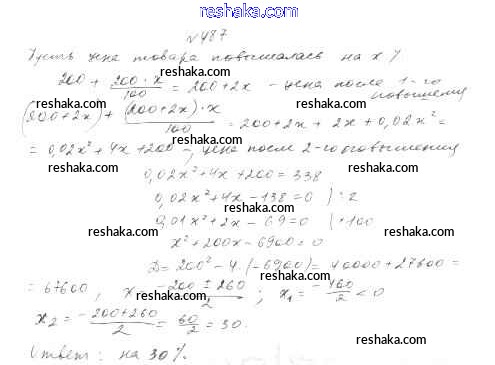 reshaka.com
№487
Пусть цена товара повышалась на x %
200 + 200·x/100 = 200+2x - цена после 1-го повышения
reshaka.com reshaka.com
(200+2x) + (200+2x)·x/100 = 200+2x + 2x + 0,02x² =
reshaka.com reshaka.com
= 0,02x² + 4x + 200 - цена после 2-го повышения
reshaka.com reshaka.com
0,02x² + 4x + 200 = 338
0,02x² + 4x - 138 = 0 | :2
reshaka.com
0,01x² + 2x - 69 = 0 | ·100
reshaka.com
x² + 200x - 6900 = 0
reshaka.com
D = 200² - 4·(-6900) = 40000 + 27600 =
reshaka.com
= 67600, x = -200 ± 260/2; x₁ = -460/2 < 0
reshaka.com
x₂ = -200+260/2 = 60/2 = 30.
reshaka.com
Ответ: на 30%.
reshaka.com